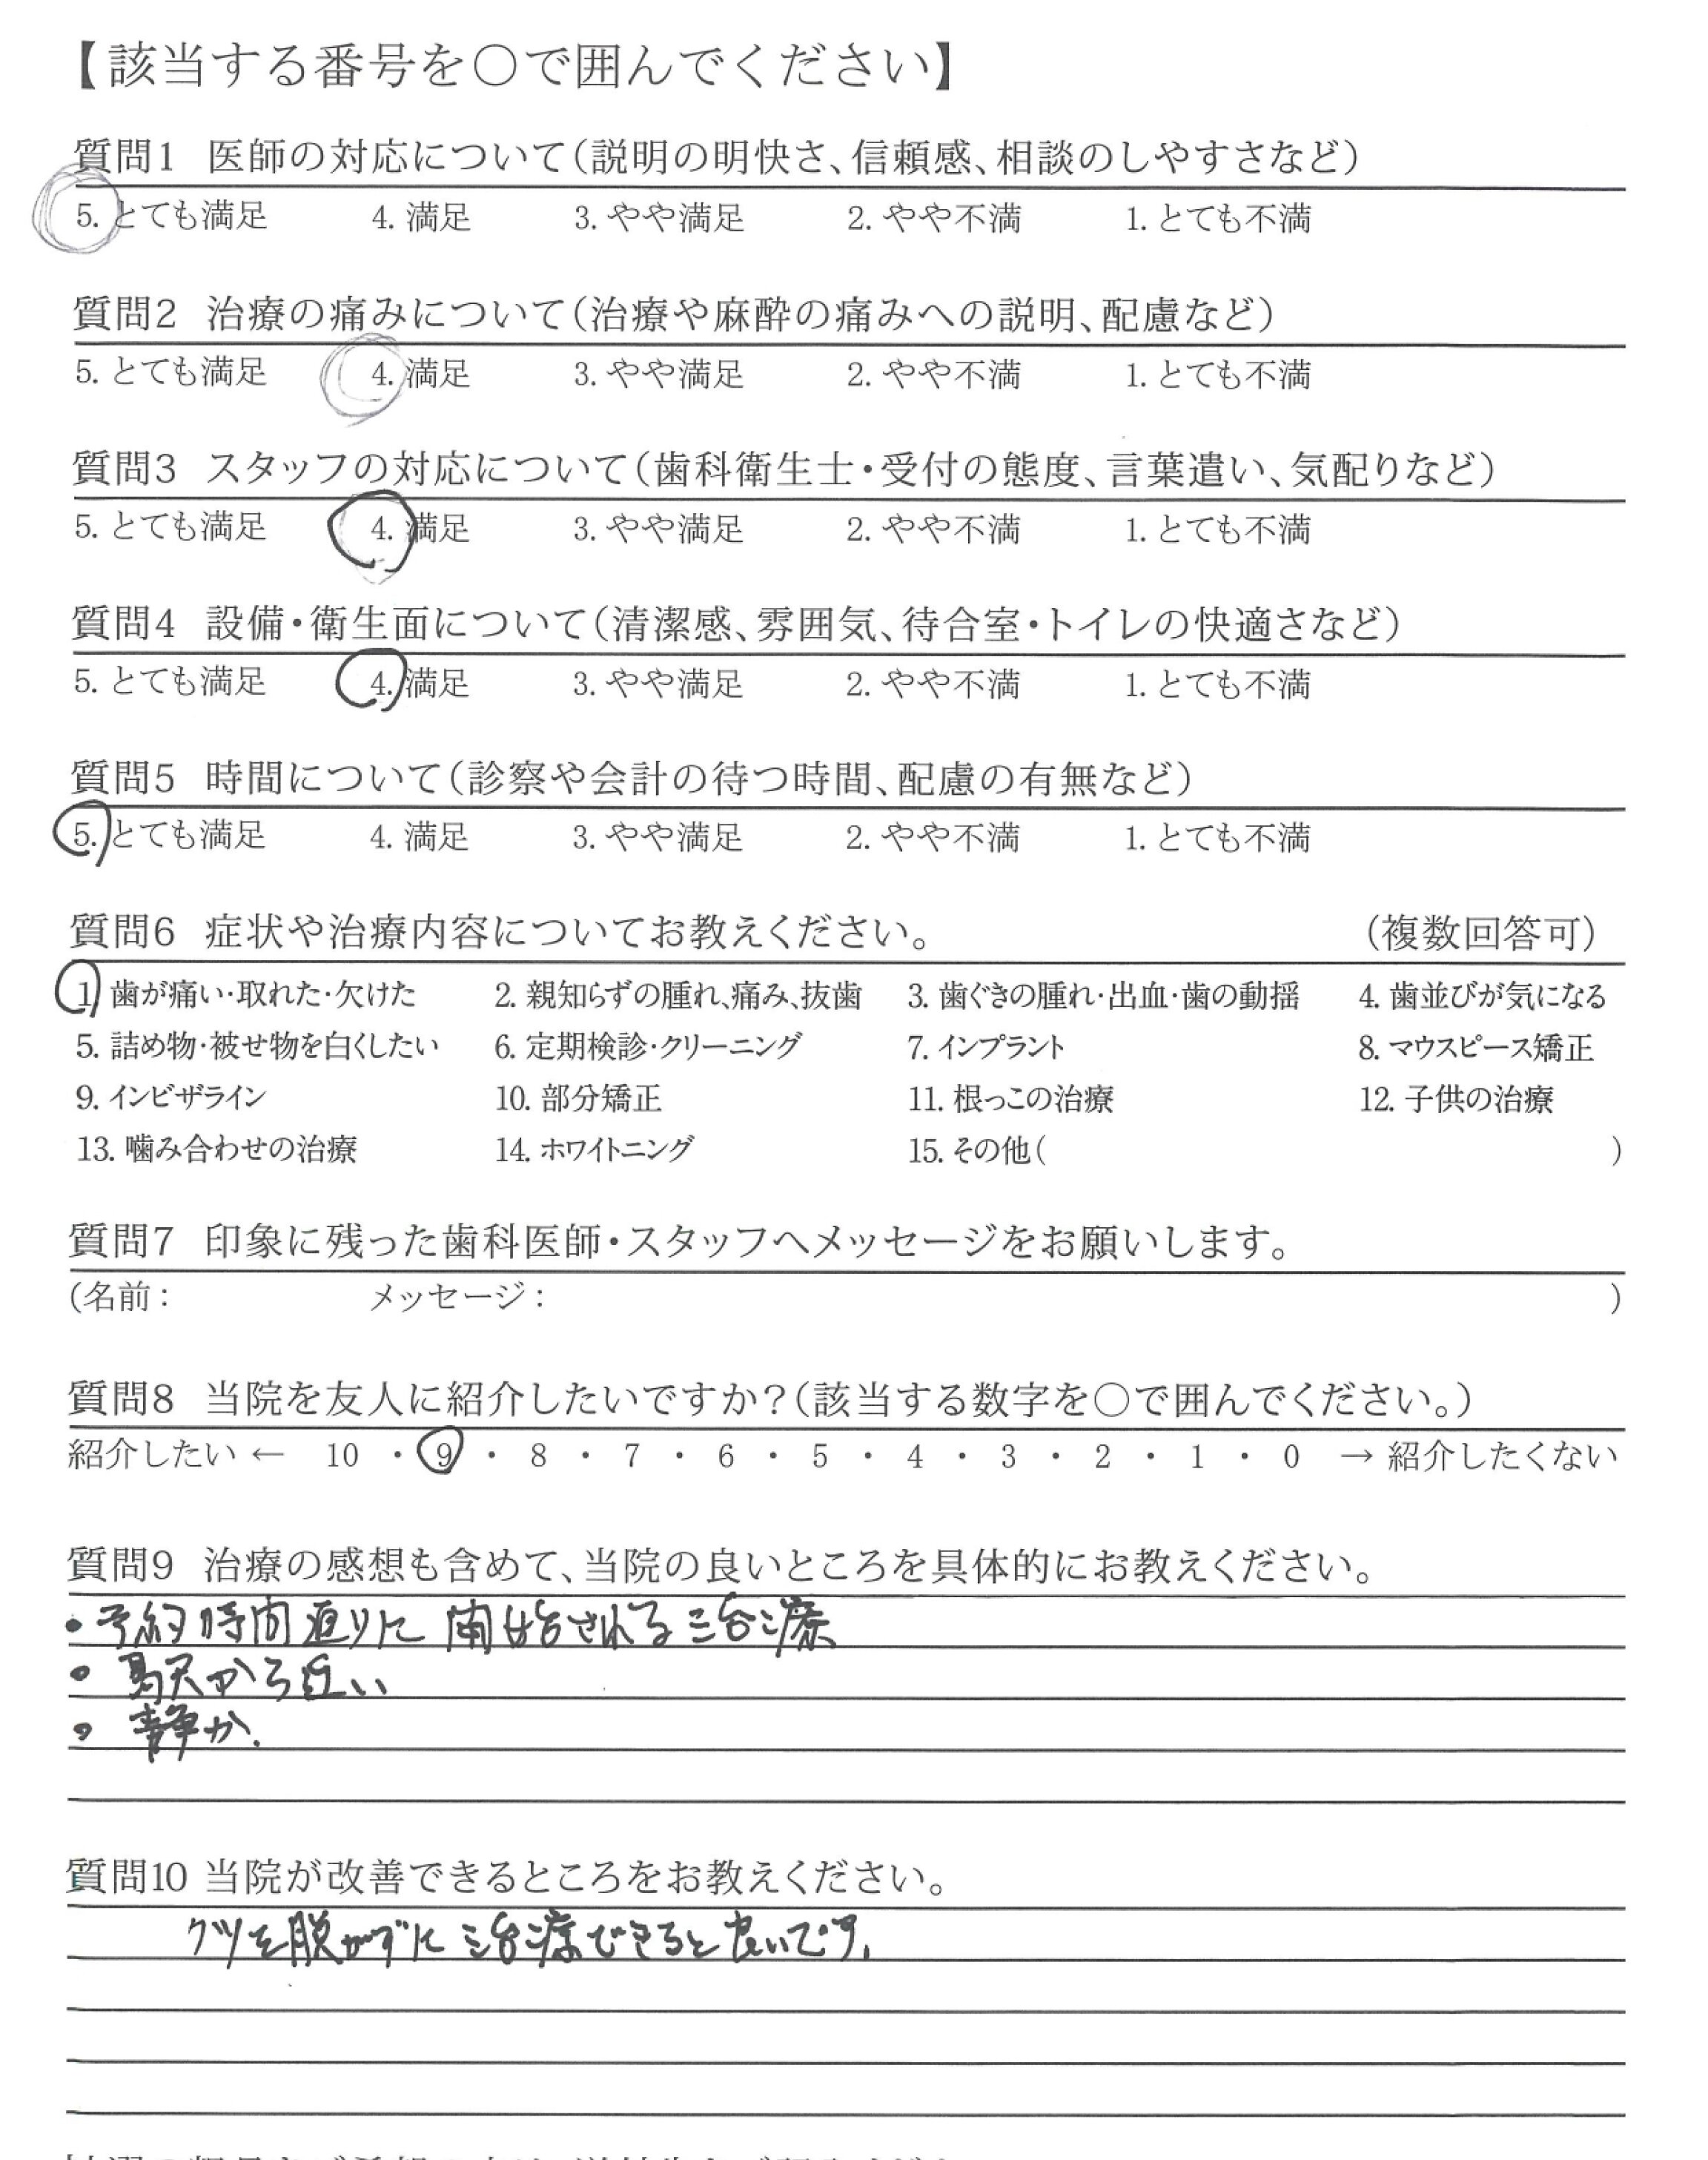 【該当する番号を○で囲んでください】
質問1 医師の対応について(説明の明快さ、信頼感、相談のしやすさなど)
5. とても満足 4. 満足 3. やや満足 2. やや不満 1. とても不満
質問2 治療の痛みについて(治療や麻酔の痛みへの説明、配慮など)
5. とても満足 4. 満足 3. やや満足 2. やや不満 1. とても不満
質問3 スタッフの対応について(歯科衛生士・受付の態度、言葉遣い、気配りなど)
5. とても満足 4. 満足 3. やや満足 2. やや不満 1. とても不満
質問4 設備・衛生面について(清潔感、雰囲気、待合室・トイレの快適さなど)
5. とても満足 4. 満足 3. やや満足 2. やや不満 1. とても不満
質問5 時間について(診察や会計の待つ時間、配慮の有無など)
5. とても満足 4. 満足 3. やや満足 2. やや不満 1. とても不満
質問6 症状や治療内容についてお教えください。 (複数回答可)
1. 歯が痛い・取れた・欠けた 2. 親知らずの腫れ、痛み、抜歯 3. 歯ぐきの腫れ・出血・歯の動揺 4. 歯並びが気になる
5. 詰め物・被せ物を白くしたい 6. 定期検診・クリーニング 7. インプラント 8. マウスピース矯正
9. インビザライン 10. 部分矯正 11. 根っこの治療 12. 子供の治療
13. 噛み合わせの治療 14. ホワイトニング 15. その他( )
質問7 印象に残った歯科医師・スタッフへメッセージをお願いします。
(名前: メッセージ: )
質問8 当院を友人に紹介したいですか?(該当する数字を○で囲んでください。)
紹介したい ← 10 ・ 9 ・ 8 ・ 7 ・ 6 ・ 5 ・ 4 ・ 3 ・ 2 ・ 1 ・ 0 → 紹介したくない
質問9 治療の感想も含めて、当院の良いところを具体的にお教えください。
・予約時間通りに開始される治療
・駅から近い
・静か.
質問10 当院が改善できるところをお教えください。
クツを脱がずに治療できると良いです。